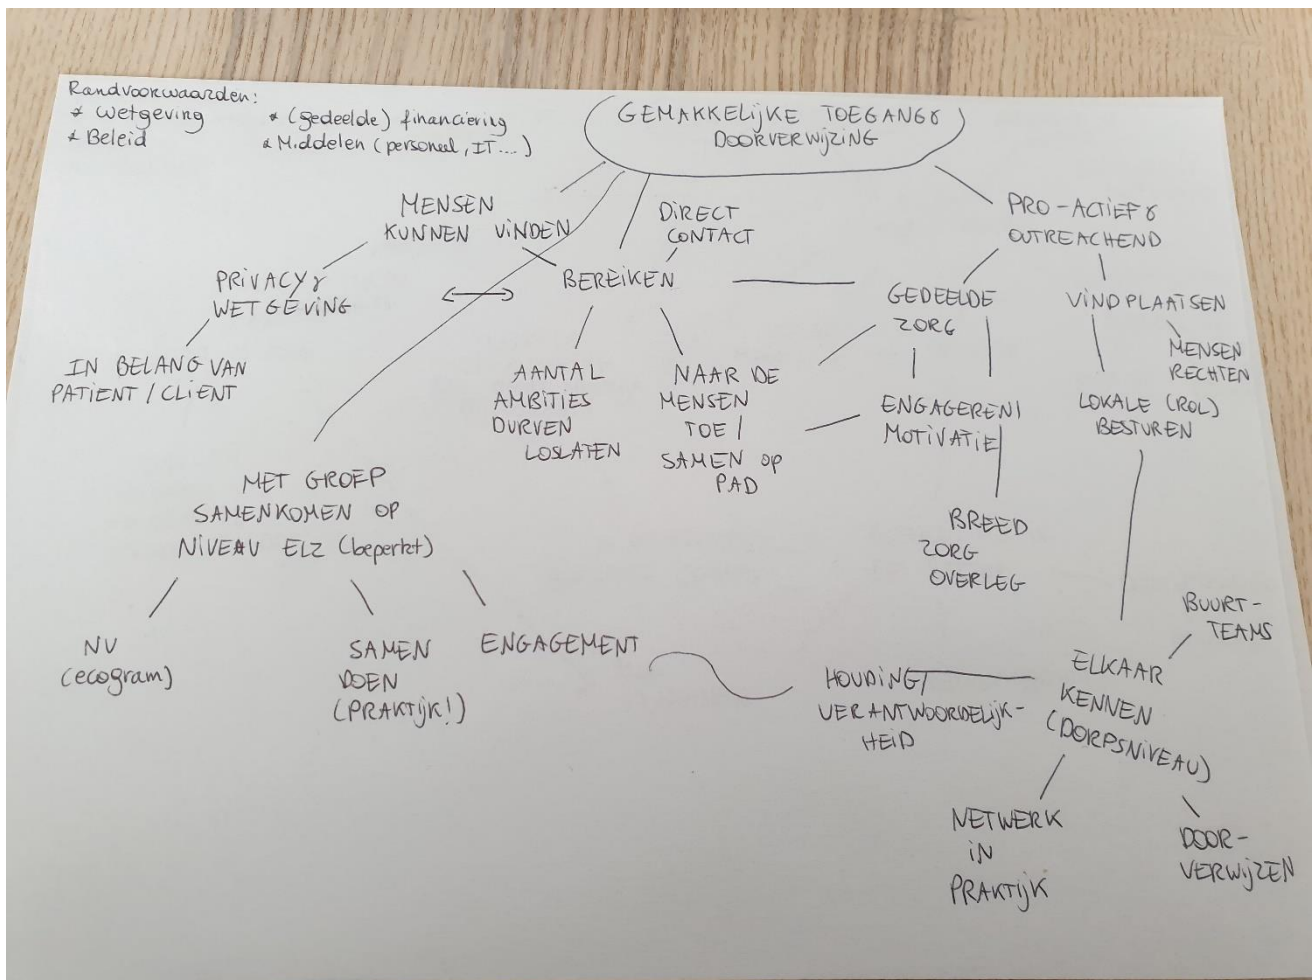 Randvoorwaarden:
* wetgeving
* Beleid
* (gedeelde) financiering
* Middelen (personeel, IT...)
GEMAKKELIJKE TOEGANG &
DOORVERWIJZING
MENSEN
KUNNEN VINDEN
DIRECT
CONTACT
PRO-ACTIEF &
OUTREACHEND
PRIVACY &
WETGEVING
BEREIKEN
GEDEELDE
ZORG
VINDPLAATSEN
MENSEN
RECHTEN
IN BELANG VAN
PATIENT / CLIENT
AANTAL
AMBITIES
DURVEN
LOSLATEN
NAAR DE
MENSEN
TOE /
SAMEN OP
PAD
ENGAGEREN /
MOTIVATIE
LOKALE (ROL)
BESTUREN
MET GROEP
SAMENKOMEN OP
NIVEAU ELZ (beperkt)
BREED
ZORG
OVERLEG
NU
(ecogram)
SAMEN
DOEN
(PRAKTIJK!)
ENGAGEMENT
BUURT-
TEAMS
HOUDING /
VERANTWOORDELIJK-
HEID
ELKAAR
KENNEN
(DORPSNIVEAU)
NETWERK
IN
PRAKTIJK
DOOR-
VERWIJZEN